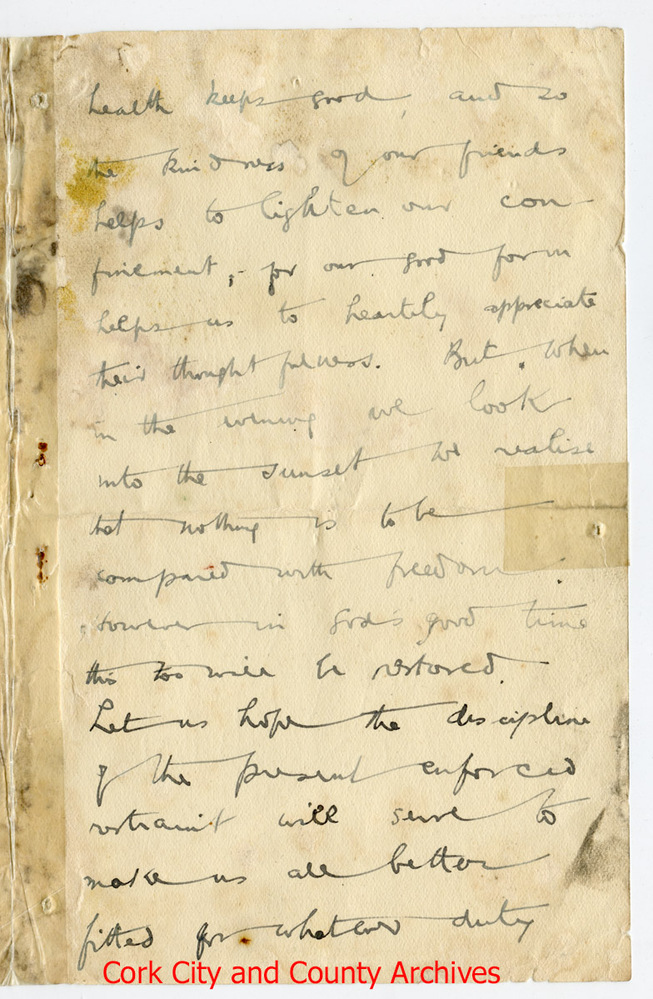 health keeps good, and so
the kindness of our friends
helps to lighten our con-
finement, - for our good form
helps us to heartily appreciate
their thoughtfulness. But, when
in the evening we look
into the sunset we realise
that nothing is to be
compared with freedom.
However in God's good time
this too will be restored.
Let us hope the discipline
of the present enforced
restraint will serve to
make us all better
fitted for whatever duty
Cork City and County Archives